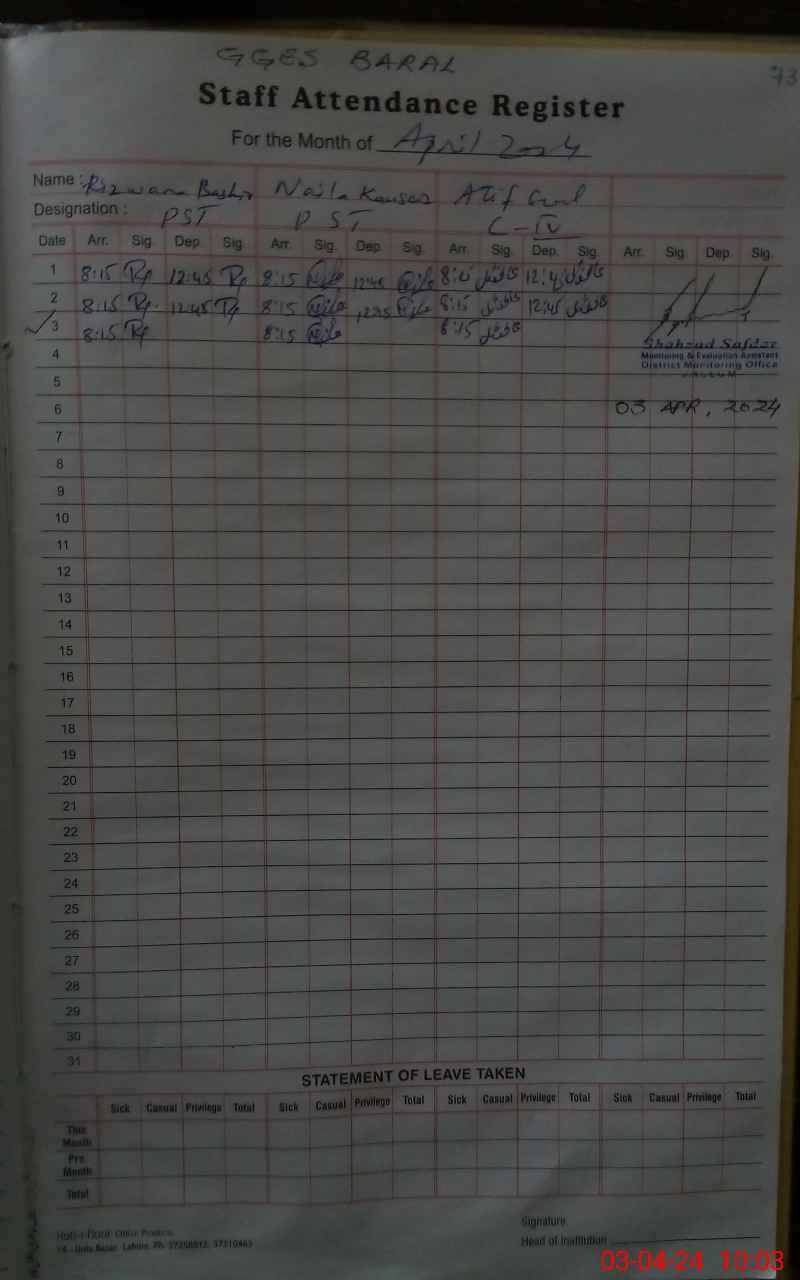 GGES BARAL
73
Staff Attendance Register
For the Month of April 2024
Name : Rizwana Bashir Naila Kausar Atif
Designation : PST PST C-IV
Date Arr. Sig. Dep. Sig. Arr. Sig. Dep. Sig. Arr. Sig. Dep. Sig. Arr. Sig. Dep. Sig.
1 8:15 12:45 8:15 12:45 8:15 12:45
2 8:15 12:45 8:15 12:45 8:15 12:45
✓ 3 8:15 8:15 8:15
Shahzad Safdar
4
Monitoring & Evaluation Assistant
District Monitoring Office
5
6 03 APR, 2024
7
8
9
10
11
12
13
14
15
16
17
18
19
20
21
22
23
24
25
26
27
28
29
30
31
STATEMENT OF LEAVE TAKEN
Sick Casual Privilege Total Sick Casual Privilege Total Sick Casual Privilege Total Sick Casual Privilege Total
This Month
Pre Month
Total
Office Products
Urdu Bazar, Lahore. Ph:
Signature
Head of Institution
03-04-24 10:03